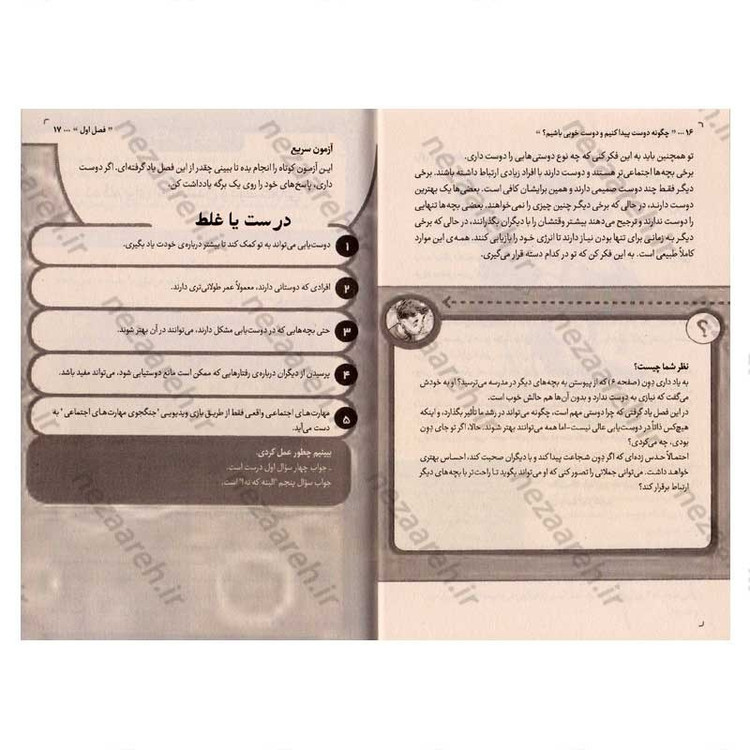 ۱۶ ... " چگونه دوست پیدا کنیم و دوست خوبی باشیم؟ "
تو همچنین باید به این فکر کنی که چه نوع دوستی‌هایی را دوست داری.
برخی بچه‌ها اجتماعی‌تر هستند و دوست دارند با افراد زیادی ارتباط داشته باشند. برخی
دیگر فقط چند دوست صمیمی دارند و همین برایشان کافی است. بعضی‌ها یک بهترین
دوست دارند، در حالی که برخی دیگر چنین چیزی را نمی‌خواهند. بعضی بچه‌ها تنهایی
را دوست ندارند و ترجیح می‌دهند بیشتر وقتشان را با دیگران بگذرانند، در حالی که برخی
دیگر به زمانی برای تنها بودن نیاز دارند تا انرژی خود را بازیابی کنند. همه‌ی این موارد
کاملاً طبیعی است. به این فکر کن که تو در کدام دسته قرار می‌گیری.
؟
نظر شما چیست؟
به یاد داری دِون (صفحه ۶) که از پیوستن به بچه‌های دیگر در مدرسه می‌ترسید؟ او به خودش
می‌گفت که نیازی به دوست ندارد و بدون آن‌ها هم حالش خوب است.
در این فصل یاد گرفتی که چرا دوستی مهم است، چگونه می‌تواند در رشد ما تأثیر بگذارد، و اینکه
هیچ‌کس ذاتاً در دوست‌یابی عالی نیست-اما همه می‌توانند بهتر شوند. حالا، اگر تو جای دِون
بودی، چه می‌کردی؟
احتمالاً حدس زده‌ای که اگر دِون شجاعت پیدا کند و با دیگران صحبت کند، احساس بهتری
خواهد داشت. می‌توانی جملاتی را تصور کنی که او می‌تواند بگوید تا راحت‌تر با بچه‌های دیگر
ارتباط برقرار کند؟
" فصل اول " ... ۱۷
آزمون سریع
این آزمون کوتاه را انجام بده تا ببینی چقدر از این فصل یاد گرفته‌ای. اگر دوست
داری، پاسخ‌های خود را روی یک برگه یادداشت کن.
درست یا غلط
۱ دوست‌یابی می‌تواند به تو کمک کند تا بیشتر درباره‌ی خودت یاد بگیری.
۲ افرادی که دوستانی دارند، معمولاً عمر طولانی‌تری دارند.
۳ حتی بچه‌هایی که در دوست‌یابی مشکل دارند، می‌توانند در آن بهتر شوند.
۴ پرسیدن از دیگران درباره‌ی رفتارهایی که ممکن است مانع دوستیابی شود، می‌تواند مفید باشد.
۵ مهارت‌های اجتماعی واقعی فقط از طریق بازی ویدیویی "جنگجوی مهارت‌های اجتماعی" به
دست می‌آید.
ببینیم چطور عمل کردی.
. جواب چهار سؤال اول درست است.
جواب سؤال پنجم "البته که نه!" است.
nezaareh.ir